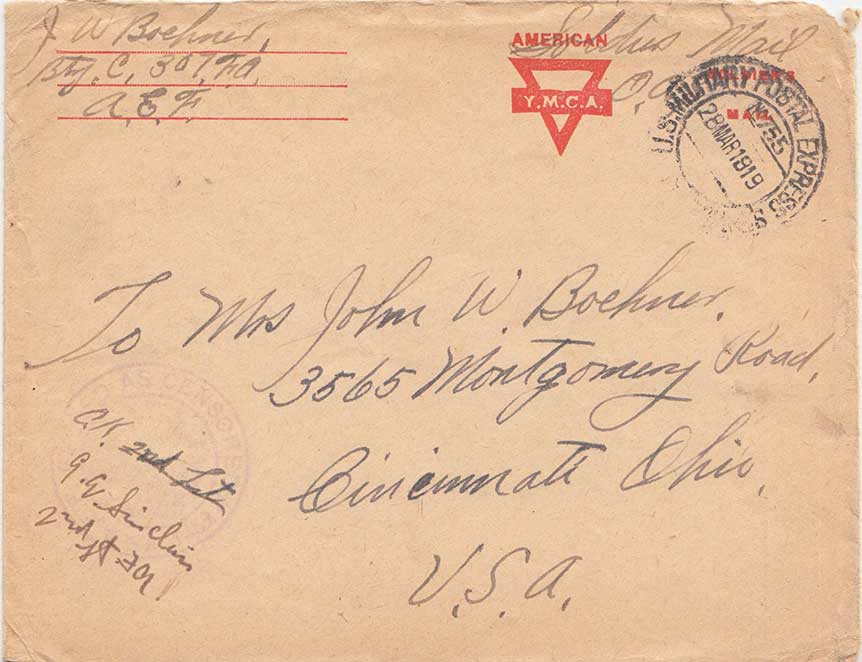 J W Boehner,
Bty. C, 301 F.A.
A.E.F.
AMERICAN
Y.M.C.A.
Soldiers Mail
O.
SOLDIER'S
MAIL
U.S. MILITARY POSTAL EXPRESS
No 755
28 MAR 1919
To Mrs John W. Boehner.
3565 Montgomery Road,
Cincinnati Ohio,
U.S.A.
O.K. 2nd Lt
G.E. Sinclair
2nd Lt FA